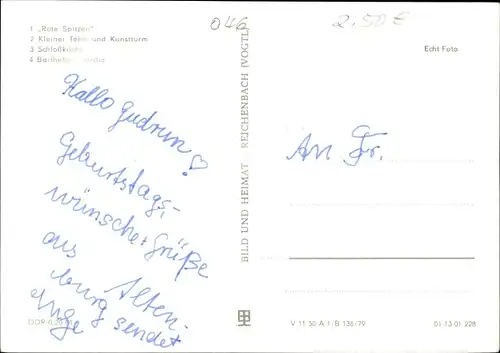 046
2.50 €
1 „Rote Spitzen"
2 Kleiner Teich und Kunstturm
3 Schloßkirche
4 Bartholomäi
Echt Foto
Hallo Gudrun! ♡
Geburtstags-
wünsche + Grüße
aus Alten-
burg sendet
Inge
An Fr.
BILD UND HEIMAT REICHENBACH (VOGTL)
V 11 50 A 1/B 136/79
01 13 01 228